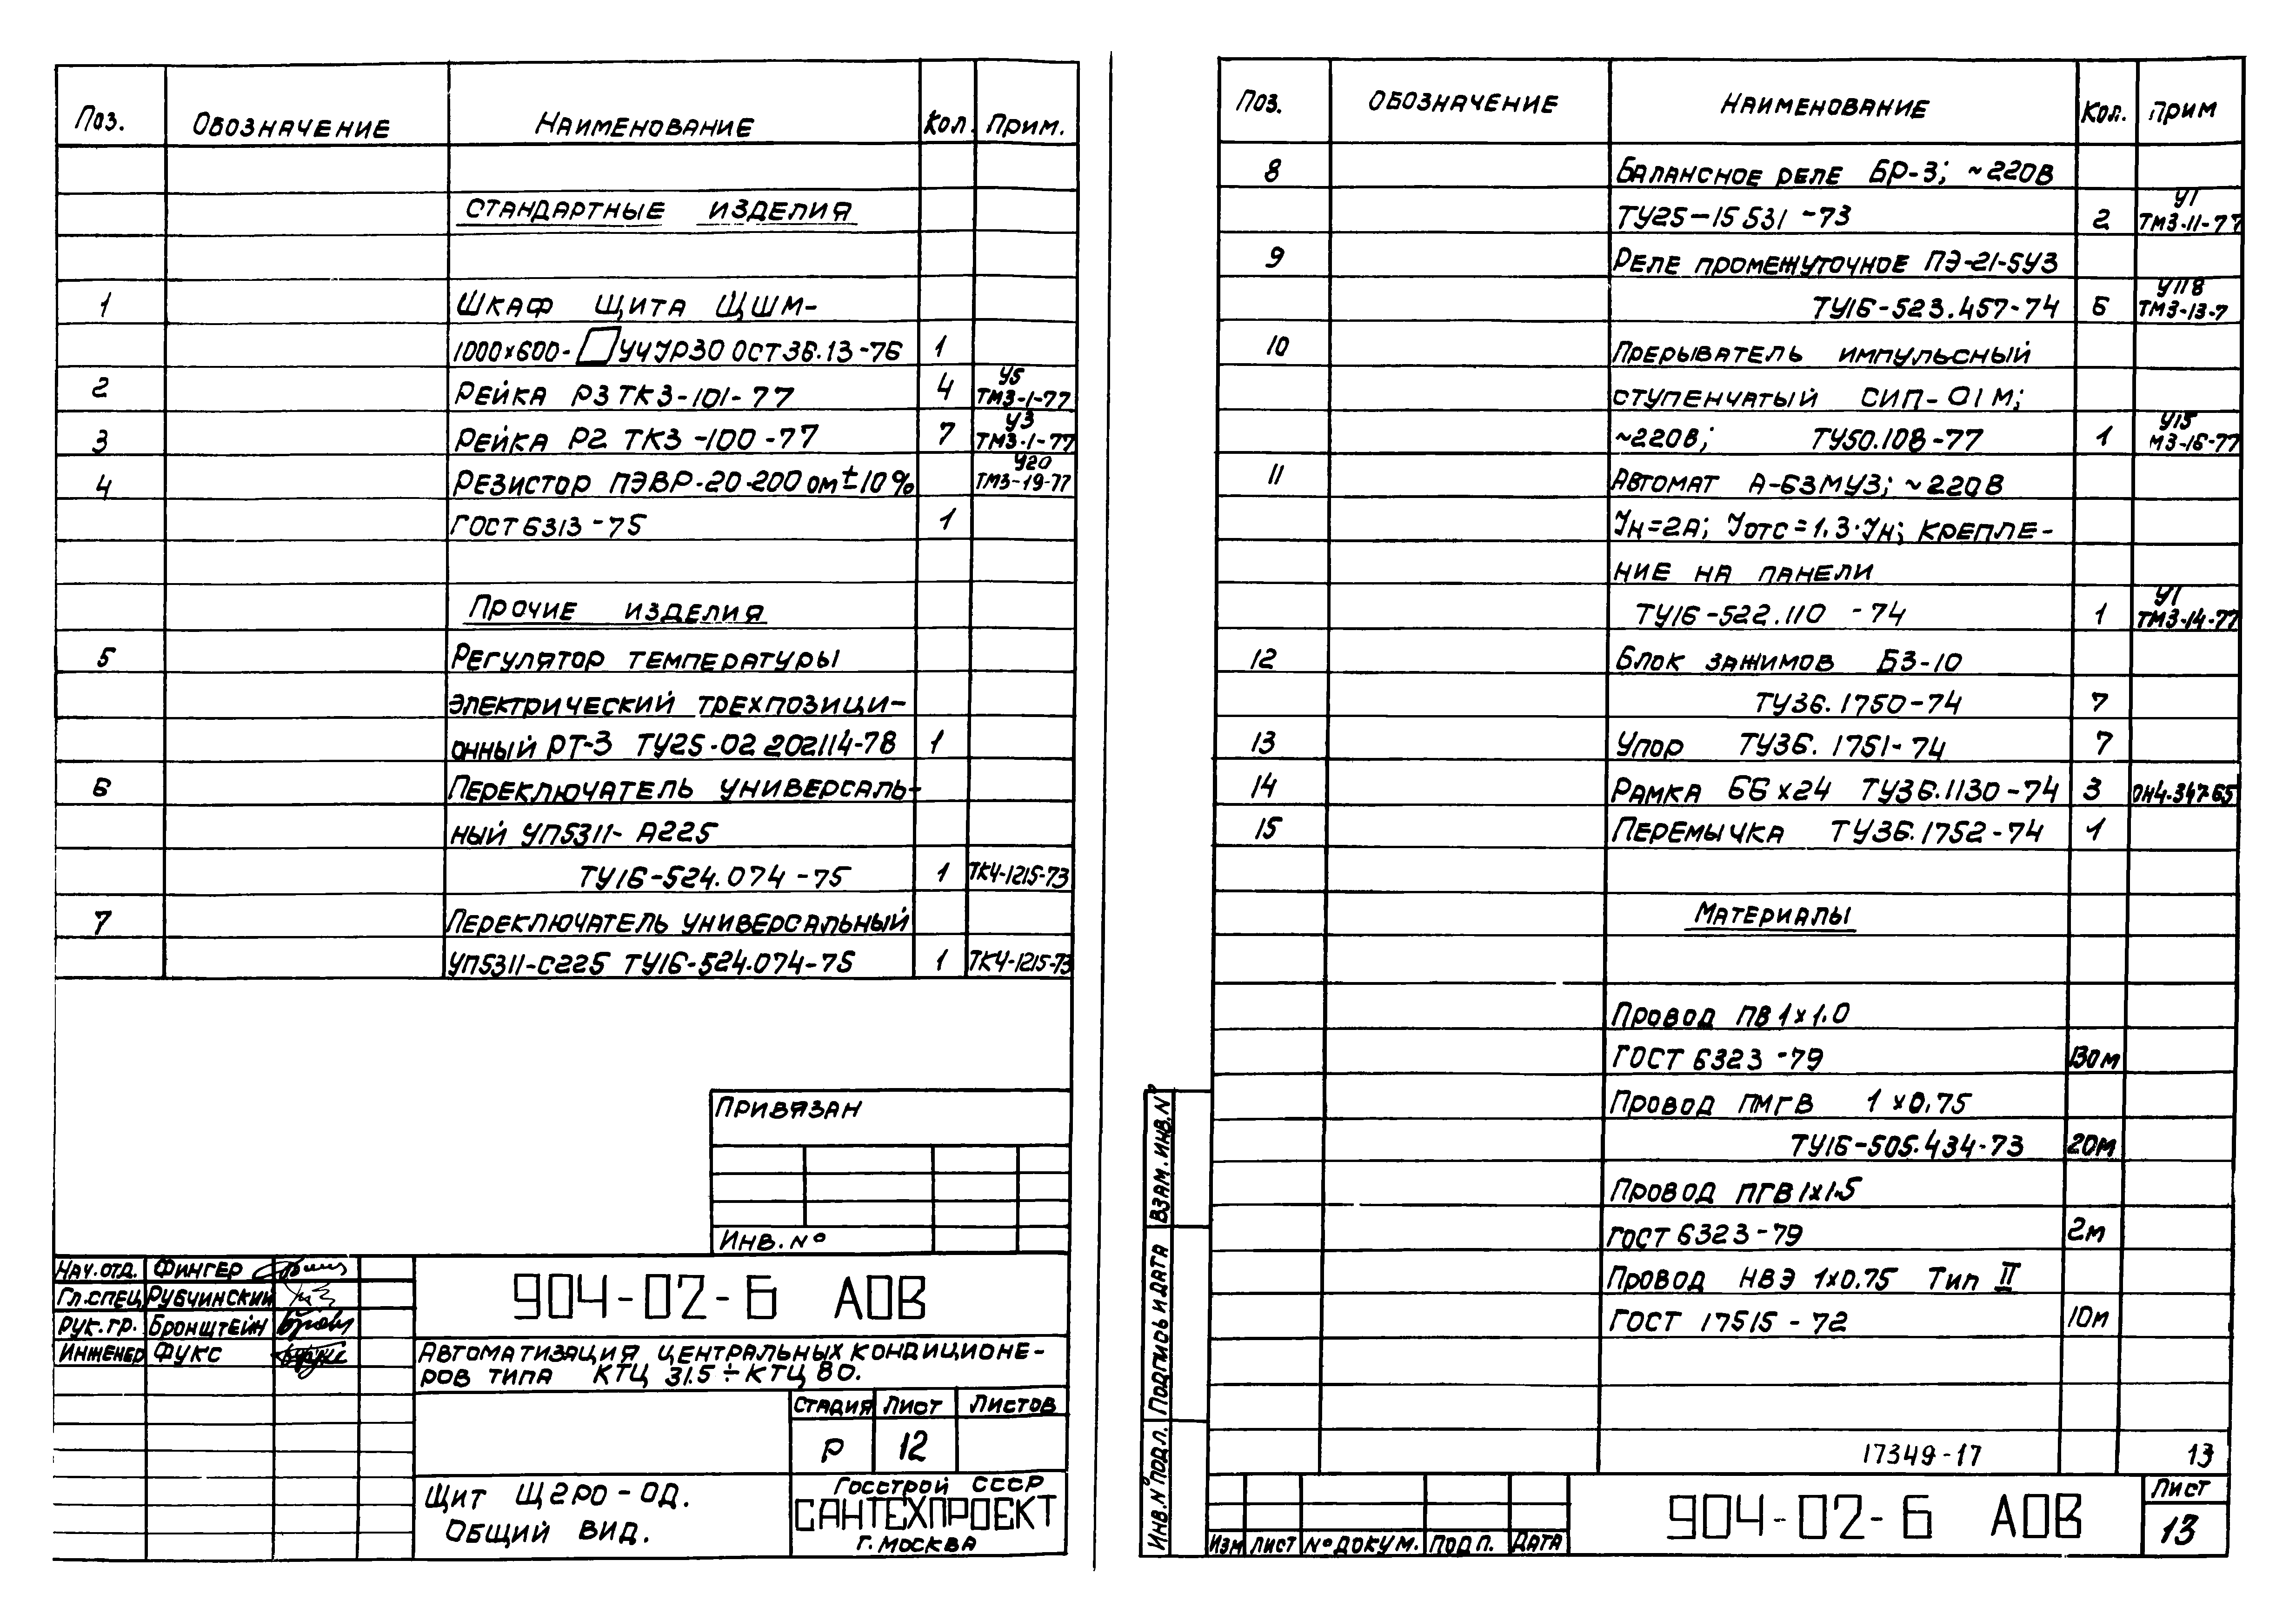 Поз. Обозначение Наименование Кол. Прим.
Стандартные изделия
1 Шкаф щита ЩШМ-
1000×600- УЧУР30 ОСТ36.13-76 1
2 Рейка Р3 ТК3-101-77 4 У5 ТМ3-1-77
3 Рейка Р2 ТК3-100-77 7 У3 ТМ3-1-77
4 Резистор ПЭВР-20-200 ом±10% У20 ТМ3-19-77
ГОСТ 6313-75 1
Прочие изделия
5 Регулятор температуры
электрический трехпозици-
онный РТ-3 ТУ25-02 202114-78 1
6 Переключатель универсаль-
ный УП5311-А225
ТУ16-524.074-75 1 ТК4-1215-73
7 Переключатель универсальный
УП5311-С225 ТУ16-524.074-75 1 ТК4-1215-73
Привязан
Инв. №
Нач. отд. Фингер
Гл. спец. Рубчинский
Рук. гр. Бронштейн
Инженер Фукс
904-02-6 АОВ
Автоматизация центральных кондиционе-
ров типа КТЦ 31.5÷КТЦ 80.
Стадия Лист Листов
Р 12
Щит Щ2РО-ОД.
Общий вид.
Госстрой СССР
САНТЕХПРОЕКТ
г. Москва
Поз. Обозначение Наименование Кол. Прим
8 Балансное реле БР-3; ~220В
ТУ25-15 531-73 2 У1 ТМ3-11-77
9 Реле промежуточное ПЭ-21-5У3
ТУ16-523.457-74 6 УП8 ТМ3-13-7
10 Прерыватель импульсный
ступенчатый СИП-01М;
~220В; ТУ50.108-77 1 У15 М3-16-77
11 Автомат А-63МУ3; ~220В
Jн=2А; Jотс=1.3·Jн; крепле-
ние на панели
ТУ16-522.110-74 1 У1 ТМ3-14-77
12 Блок зажимов БЗ-10
ТУ36.1750-74 7
13 Упор ТУ36.1751-74 7
14 Рамка 66×24 ТУ36.1130-74 3 ОН4-347-65
15 Перемычка ТУ36.1752-74 1
Материалы
Провод ПВ 1×1.0
ГОСТ 6323-79 130м
Провод ПМГВ 1×0.75
ТУ16-505.434-73 20м
Провод ПГВ 1×1.5
ГОСТ 6323-79 2м
Провод НВЭ 1×0.75 Тип II
ГОСТ 17515-72 10м
17349-17 13
Взам. инв. №
Подпись и дата
Инв. № подл.
Изм Лист № докум. Подп. Дата
904-02-6 АОВ
Лист
13